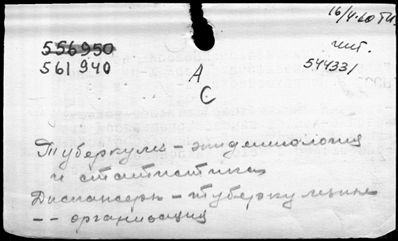 16/4-60
556950
561 940
чит.
544331
А
С
Туберкулез - эпидемиология
и статистика
Диспансеры - туберкулезные
-- организация